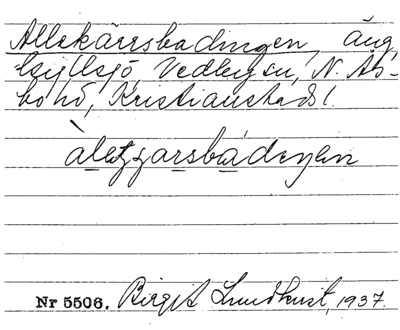 Allekärrsbadingen, äng,
Kyllsjö, Vedby sn, N. Ås-
bo hd, Kristianstads l.
Nr 5506. Birgit Lundkvist, 1937.